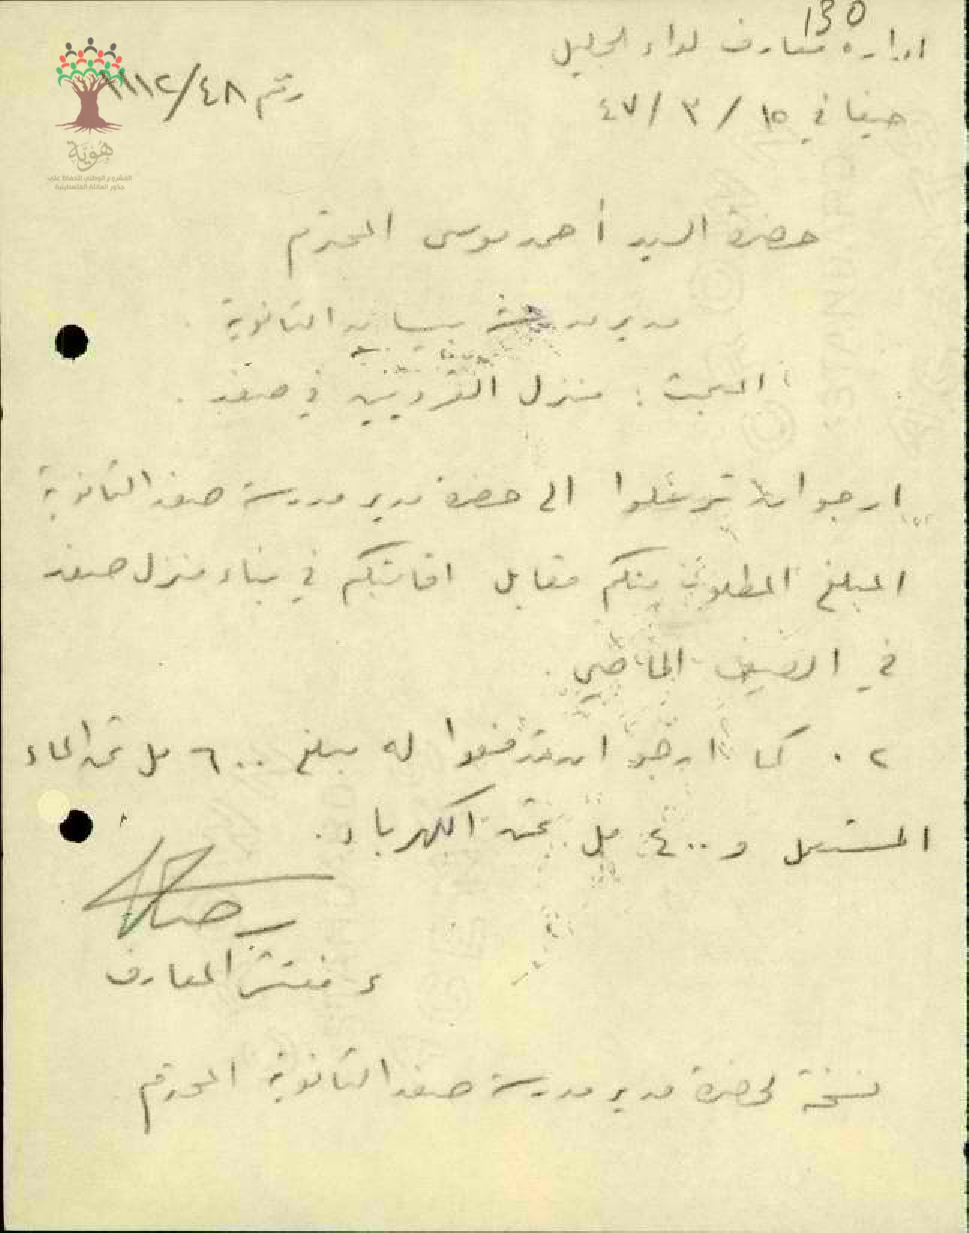 130
ادارة معارف لواء الجليل
رقم ١١١٢/٤٨
حيفا في ١٥ / ٣ / ٤٧
هُوِيَّة
المشروع الوطني للحفاظ على
جذور العائلة الفلسطينية
حضرة السيد أحمد موسى المحترم
مدير مدرسة بيسان الثانوية
المبحث : منزل القرويين في صفد .
ارجو ان ترسلوا الى حضرة مدير مدرسة صفد الثانوية
المبلغ المطلوب منكم مقابل اقامتكم في بناء منزل صفد
في الصيف الماضي .
٢ . كما ارجو ان تدفعوا له مبلغ ٦٠٠ مل ثمن الماء
المستعمل و ٤٠٠ مل ثمن الكهرباء .
ء مفتش المعارف
نسخة لحضرة مدير مدرسة صفد الثانوية المحترم .